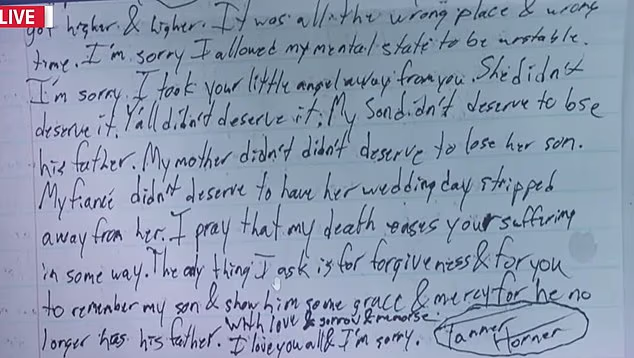 LIVE
got higher & higher. It was all the wrong place & wrong
time. I'm sorry I allowed my mental state to be unstable.
I'm sorry. I took your little angel away from you. She didn't
deserve it. Y'all didn't deserve it. My Son didn't deserve to lose
his father. My mother didn't didn't deserve to lose her son.
My fiancé didn't deserve to have her wedding day stripped
away from her. I pray that my death eases your suffering
in some way. The only thing I ask is for forgiveness & for you
to remember my son & show him some grace & mercy for he no
longer has his father. With love & sorrow & remorse.
I love you all & I'm sorry. Tanner Horner